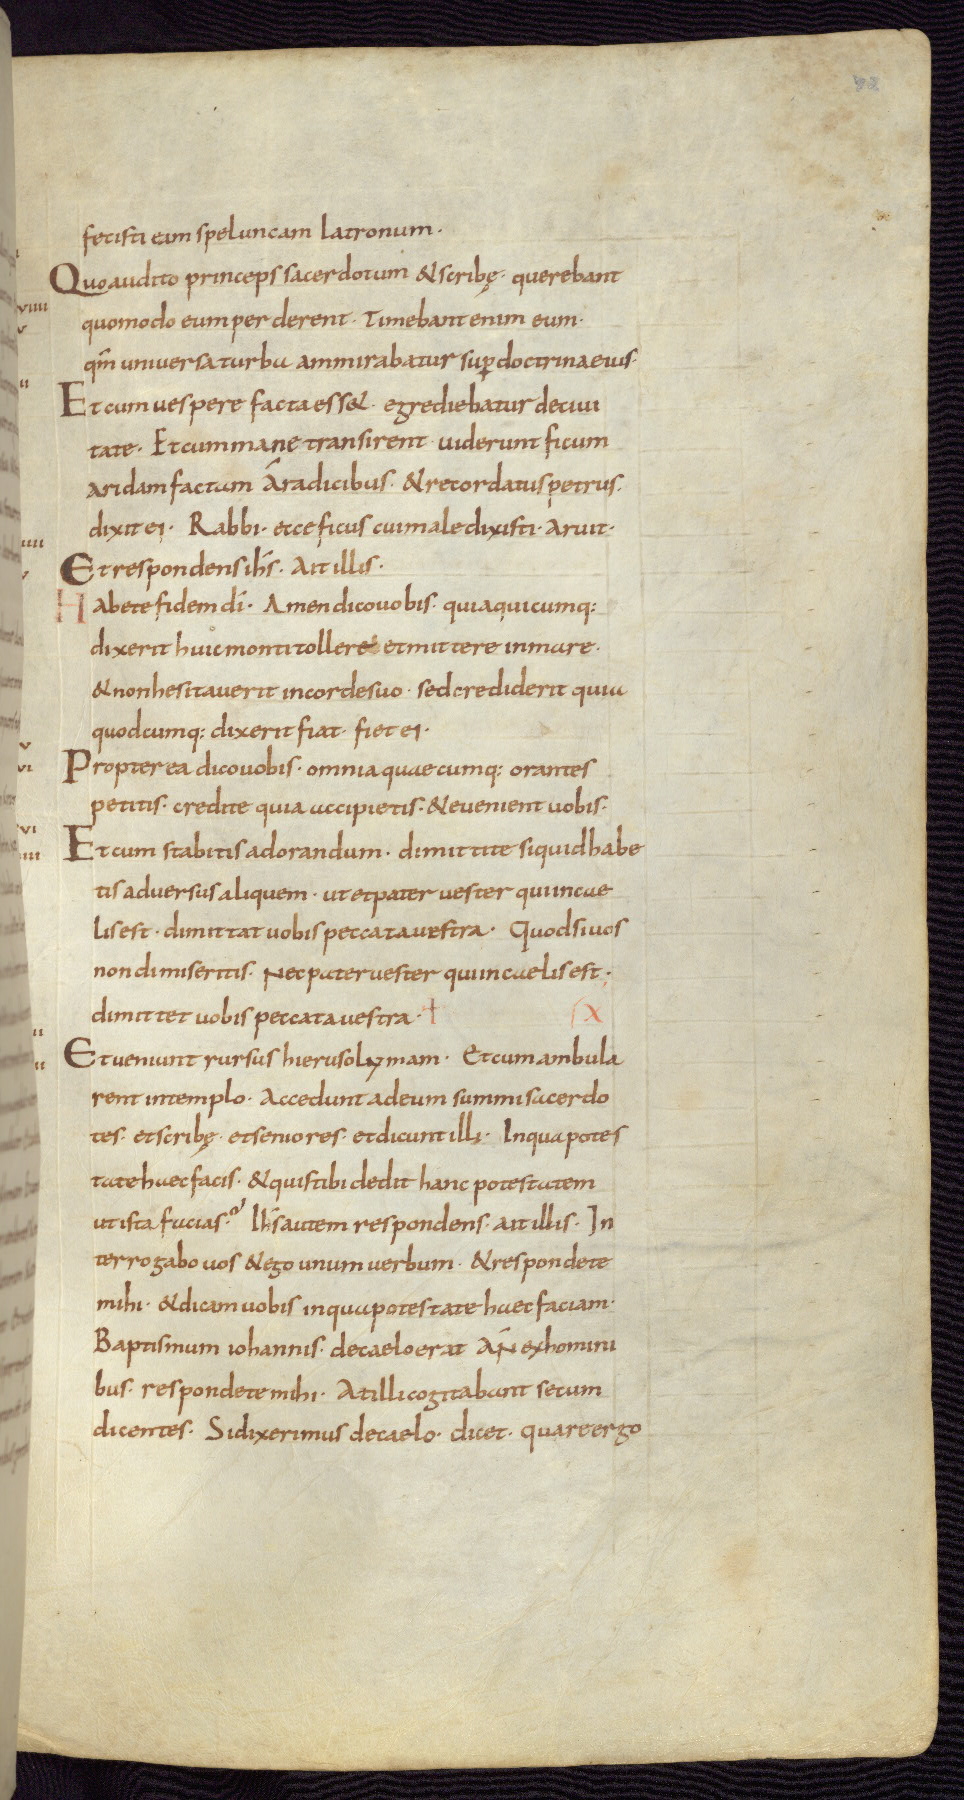 fecisti eum speluncam latronum·
Quo audito princeps sacerdotum & scribę· querebant
quomodo eum perderent· Timebant enim eum·
qm̄ universa turba ammirabatur sup doctrina eius·
Et cum uespere facta ess&· egrediebatur de ciui
tate· Et cum mane transirent uiderunt ficum
aridam factam ā radicibus· & recordatus petrus·
dixit ei· Rabbi· ecce ficus cui maledixisti· aruit·
Et respondens ihs̄· Ait illis·
Habete fidem dī· Amen dico uobis· quia quicumq:
dixerit huic monti tollere et mittere in mare·
& non hesitaverit in corde suo· sed crediderit quia
quodcumq: dixerit fiat· fiet ei·
Propterea dico uobis· omnia quaecumq: orantes
petitis· credite quia accipietis· & evenient uobis·
Et cum stabitis ad orandum· dimittite siquid habe
tis adversus aliquem· ut et pater vester qui in cae
lis est· dimittat uobis peccata vestra· Quod si uos
non dimiseritis· Nec pater vester qui in caelis est·
dimittet uobis peccata uestra· † X
Et ueniunt rursus hierusolymam· Et cum ambula
rent in templo· Accedunt ad eum summi sacerdo
tes· et scribę· et seniores· et dicunt illi· In qua potes
tate haec facis· & quis tibi dedit hanc potestatem
ut ista facias? Ihs̄ autem respondens· ait illis· In
terrogabo uos & ego unum verbum· & respondete
mihi· & dicam uobis in qua potestate haec faciam·
Baptismum iohannis· de caelo erat AN̄ ex homini
bus· respondete mihi· At illi cogitabant secum
dicentes· Si dixerimus de caelo· dicet· quare ergo